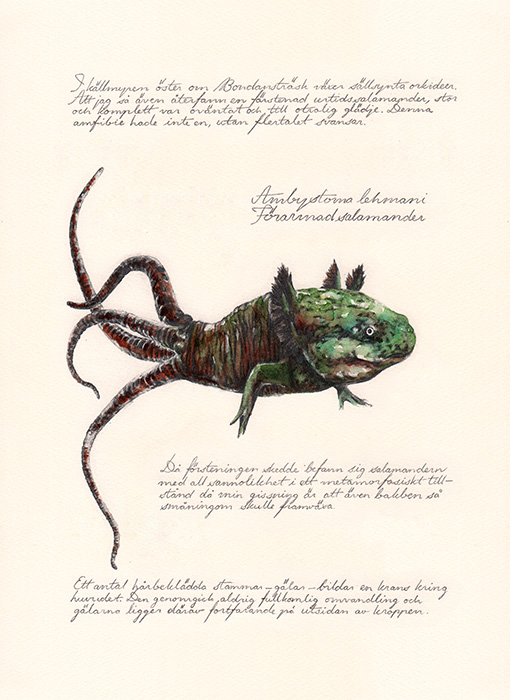 I källmyren öster om Bondansträsk växer sällsynta orkideer.
Att jag så även återfann en förstenad urtidssalamander, stor
och komplett, var oväntat och till otrolig glädje. Denna
amfibie hade inte en, utan flertalet svansar.
Ambystoma lehmani
Förarmad salamander
Då försteningen skedde befann sig salamandern
med all sannolikhet i ett metamorfosiskt till-
stånd då min gissning är att även bakben så
småningom skulle framväxa.
Ett antal hårbeklädda stammar – gälar – bildar en krans kring
huvudet. Den genomgick aldrig fullkomlig omvandling och
gälarna ligger därav fortfarande på utsidan av kroppen.